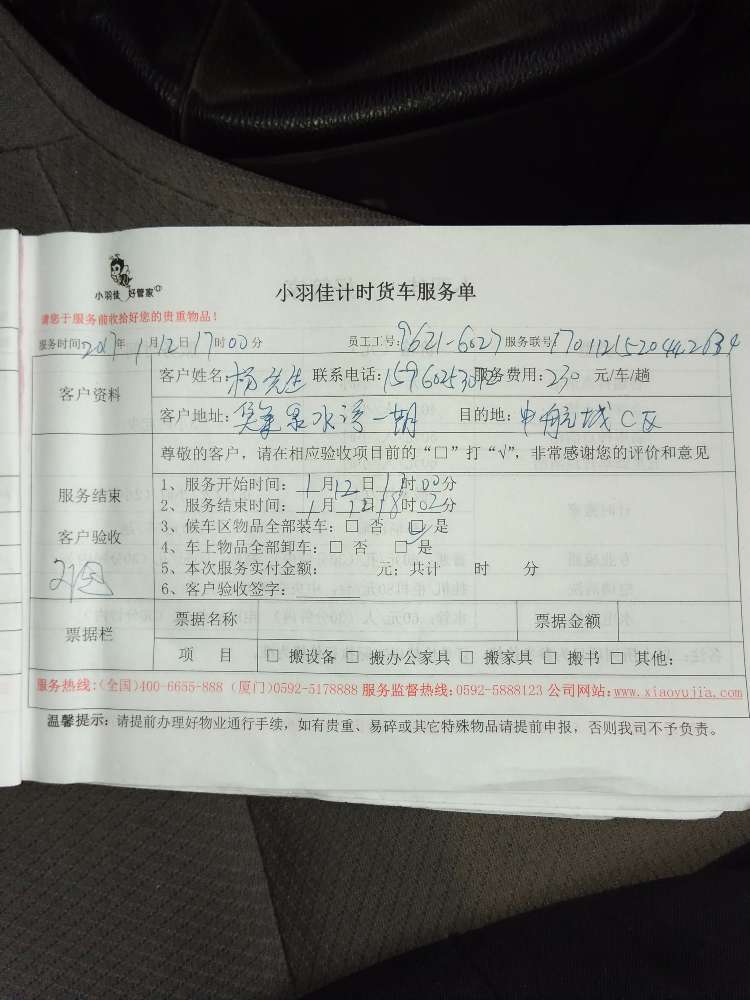 小羽佳 好管家
小羽佳计时货车服务单
请您于服务前收拾好您的贵重物品！
服务时间:2017年1月12日17时00分 员工工号:9621-6027 服务联号:
客户资料
客户姓名:杨先生 联系电话: 服务费用:230 元/车/趟
客户地址: 水湾一期 目的地:中航城C区
尊敬的客户，请在相应验收项目前的“□”打“√”，非常感谢您的评价和意见
服务结束
客户验收
1、服务开始时间：1月12日17时00分
2、服务结束时间：1月12日18时02分
3、候车区物品全部装车：□ 否 □ 是
4、车上物品全部卸车：□ 否 □ 是
5、本次服务实付金额： 元；共计 时 分
6、客户验收签字：
票据栏
票据名称 票据金额
项 目 □ 搬设备 □ 搬办公家具 □ 搬家具 □ 搬书 □ 其他：
服务热线：(全国)400-6655-888 (厦门)0592-5178888 服务监督热线：0592-5888123 公司网站：www.xiaoyujia.com
温馨提示：请提前办理好物业通行手续，如有贵重、易碎或其它特殊物品请提前申报，否则我司不予负责。